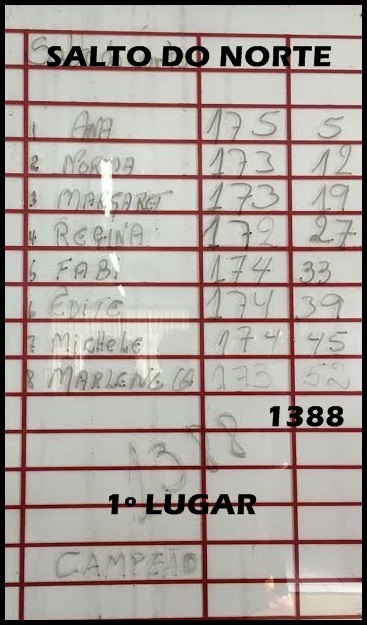 SALTO DO NORTE
1 ANA 175 5
2 NORMA 173 12
3 MARGARET 173 19
4 REGINA 172 27
5 FABI 174 33
6 EDITE 174 39
7 MICHELE 174 45
8 MARLENE 173 52
1388
1388
1º LUGAR
CAMPEÃO